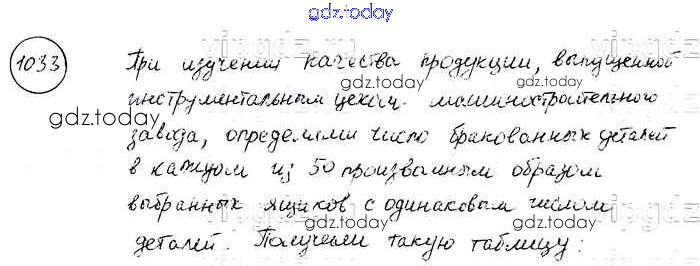 gdz.today
1033 При изучении качества продукции, выпущенной
инструментальным цехом машиностроительного
завода, определяли число бракованных деталей
в каждом из 50 произвольным образом
выбранных ящиков с одинаковым числом
деталей. Получили такую таблицу:
gdz.today
gdz.today
gdz.today
gdz.today
gdz.today
gdz.today